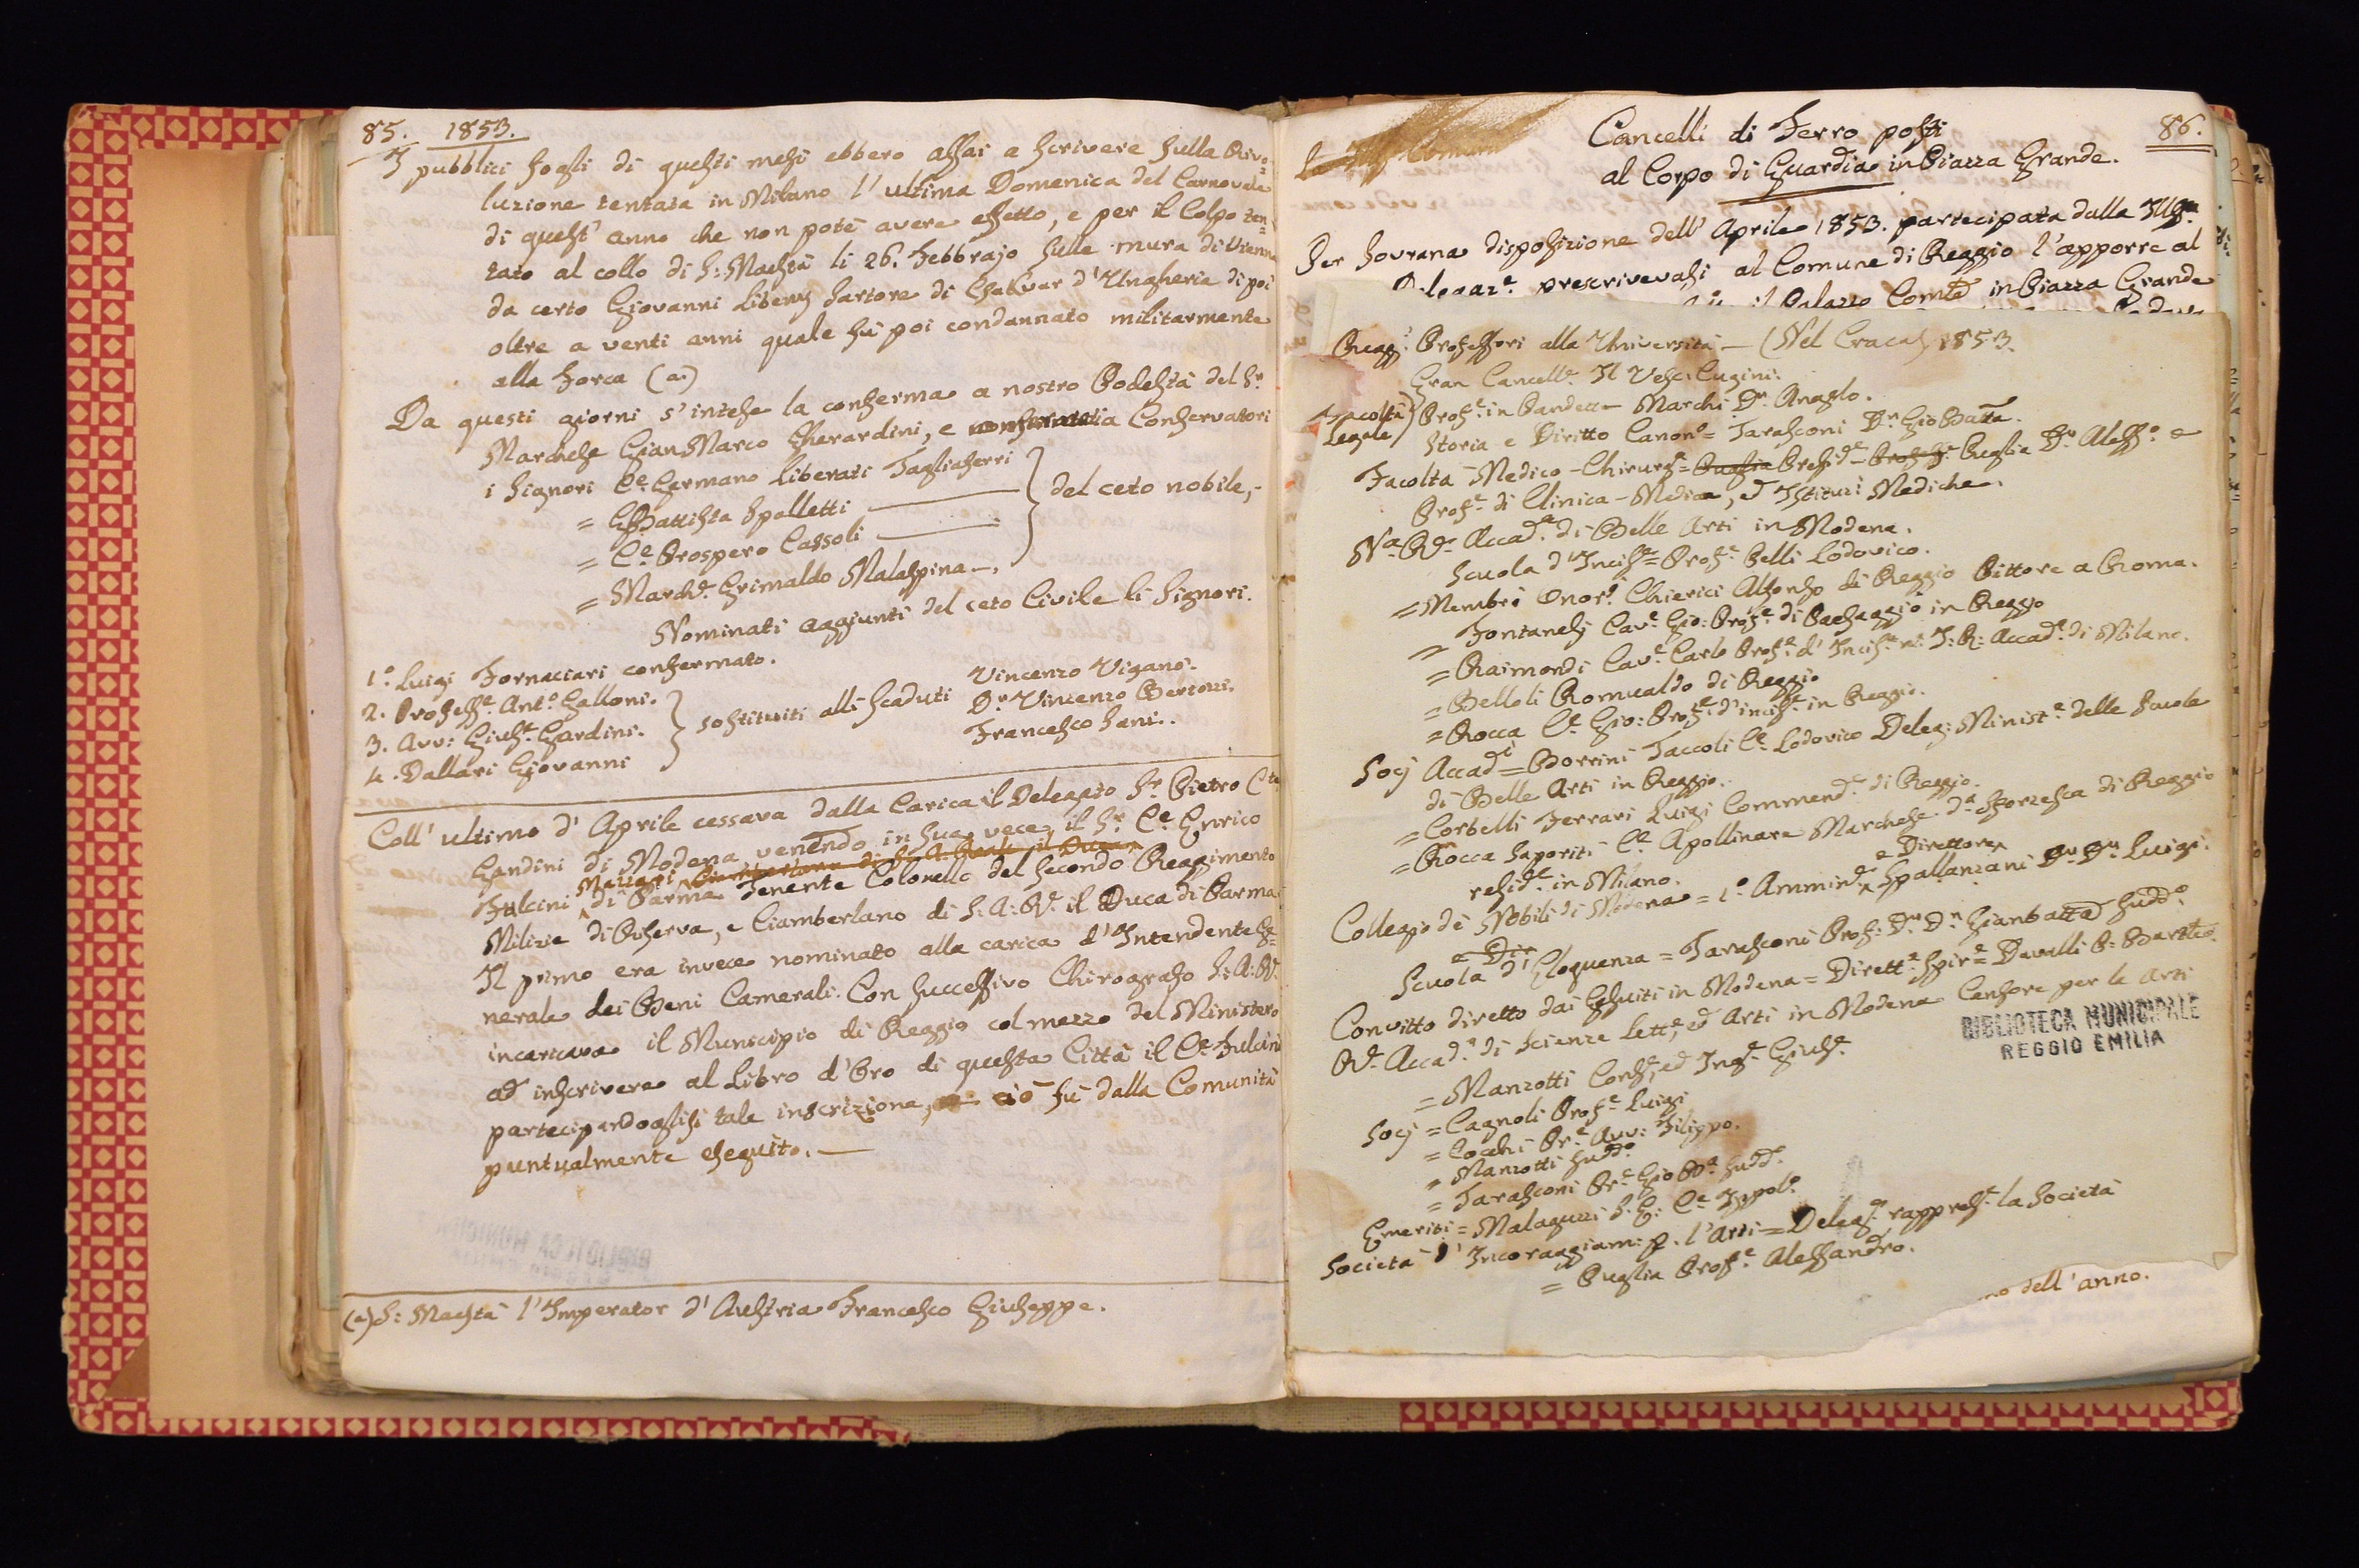 85. 1853.
I pubblici fogli di questi mesi ebbero assai a scrivere sulla Rivo=
luzione tentata in Milano l'ultima Domenica del Carnovale
di quest'anno che non potè avere effetto, e per il Colpo ten=
tato al collo di S: Maestà li 26. Febbrajo sulle mura di Vienna
da certo Giovanni Libeny sartore di d'Ungheria di poi
oltre a venti anni quale fù poi condannato militarmente
alla forca (a)
Da questi giorni s'intese la conferma a nostro Podestà del Sr.
Marchese Gian Marco Gherardini, e a Conservatori
i Signori Ce. Germano Liberati Tagliaferri
= GBattista Spalletti
= Ce. Prospero Cassoli
= March.e Grimaldo Malaspina —.
del ceto nobile,-
Nominati aggiunti del ceto Civile li Signori.
1.o Luigi Fornaciari confermato.
2. Profess.e Ant.o Galloni.
3. Avv: Gius.e Gardini.
4. Dallari Giovanni
sostituiti alli scaduti
Vincenzo Viganò.
Dr. Vincenzo Bertozzi.
Francesco Sani..
Coll'ultimo d'Aprile cessava dalla Carica il Delegato Sr. Pietro Cte.
Gandini di Modena venendo in sua vece, il Sr. Ce. Enrico
Fulcini di Parma Tenente Colonello del secondo Reggimento
Milizie di Riserva, e Ciamberlano di S: A: R. il Duca di Parma
Il primo era invece nominato alla carica d'Intendente Ge=
nerale dei Beni Camerali. Con successivo Chirografo S: A: R.
incaricava il Municipio di Reggio col mezzo del Ministero
ad inscrivere al Libro d'Oro di questa Città il Ce. Fulcini
partecipandoglisi tale inscrizione, ciò fù dalla Comunità
puntualmente eseguito. —
(a) S: Maestà l'Imperator d'Austria Francesco Giuseppe.
86.
Cancelli di Ferro posti
al Corpo di Guardia in Piazza Grande.
Per sovrana disposizione dell'Aprile 1853. partecipata dalla Ill.ma
Delegaz.e prescrivevasi al Comune di Reggio l'apporre al
il Palazzo Com.le in Piazza Grande
Reggi.i Professori alla Università — (Nel Cracas) 1853.
Gran Cancell.e Il Vesc: Cugini.
Facoltà Legale) Prof.e in Pandett— Marchi Dr. Anglo.
Storia e Diritto Canon.o= Tarasconi Dn. GioBatta.
Facoltà Medico-Chirurg.a= Puglia Presid.e - Profess. Puglia Dr. Aless.o e
Prof.e di Clinica-Medica, ed Istituzi Mediche.
Na. R. Accad.a di Belle Arti in Modena.
Scuola d'Incis.e= Prof.e Belli Lodovico.
= Membri Onor.i Chierici Alfonso di Reggio Pittore a Roma.
= Fontanesj Cav.e Gio: Prof.e di Paesaggio in Reggio
= Raimondi Cav.e Carlo Prof.e d'Incis.e I: R: Accad.a di Milano.
= Belloli Romualdo di Reggio
= Rocca Ce. Gio: Prof.e d'incis.e in Reggio.
Socj Accad.i= Borrini Taccoli Ce. Lodovico Deleg: Minist.e delle Scuole
di Belle Arti in Reggio.
= Corbelli Ferrari Luigi Commend.e di Reggio.
= Rocca Saporiti Ce. Apollinare Marchese da. Sforzesca di Reggio
resid.e in Milano.
Collegio dè Nobili di Modena = 1.o Ammin.e e Direttore Spallanzani Dn. Dn. Luigi.
Scuola d'Eloquenza = Tarasconi Prof: Dr. Dn. Gianbatta sudd.o
Convitto diretto dai Gesuiti in Modena = Dirett.e Spir.e= Davolli P: Bart.eo
R. Accad.a di Scienze Lett.e, ed Arti in Modena Censore per le Arti
= Manzotti Cons.e, ed Ing.e Gius.e
Socj = Cagnoli Prof.e Luigi
= Cocchi Pr.e Avv: Filippo.
= Manzotti sudd.o
= Tarasconi Pr.e Gio Ba. sudd.o
Emeriti = Malaguzzi S. E. Ce. Ippol.o
Società d'Incoraggiam: p. l'Arti = Deleg.o rappres.e la Società
= Puglia Prof.e Alessandro.
dell'anno.
BIBLIOTECA MUNICIPALE
REGGIO EMILIA